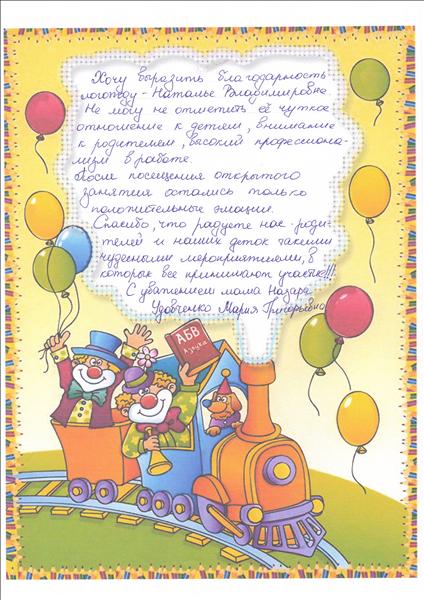 Хочу выразить благодарность
логопеду - Наталье Владимировне.
Не могу не отметить её чуткое
отношение к детям, внимание
к родителям, высокий профессиона-
лизм в работе.
После посещения открытого
занятия остались только
положительные эмоции.
Спасибо, что радуете нас - роди-
телей и наших деток такими
чудесными мероприятиями, в
которых все принимают участие!!!
С уважением мама Назара
Удовченко Мария Григорьевна
АБВ
Азбука